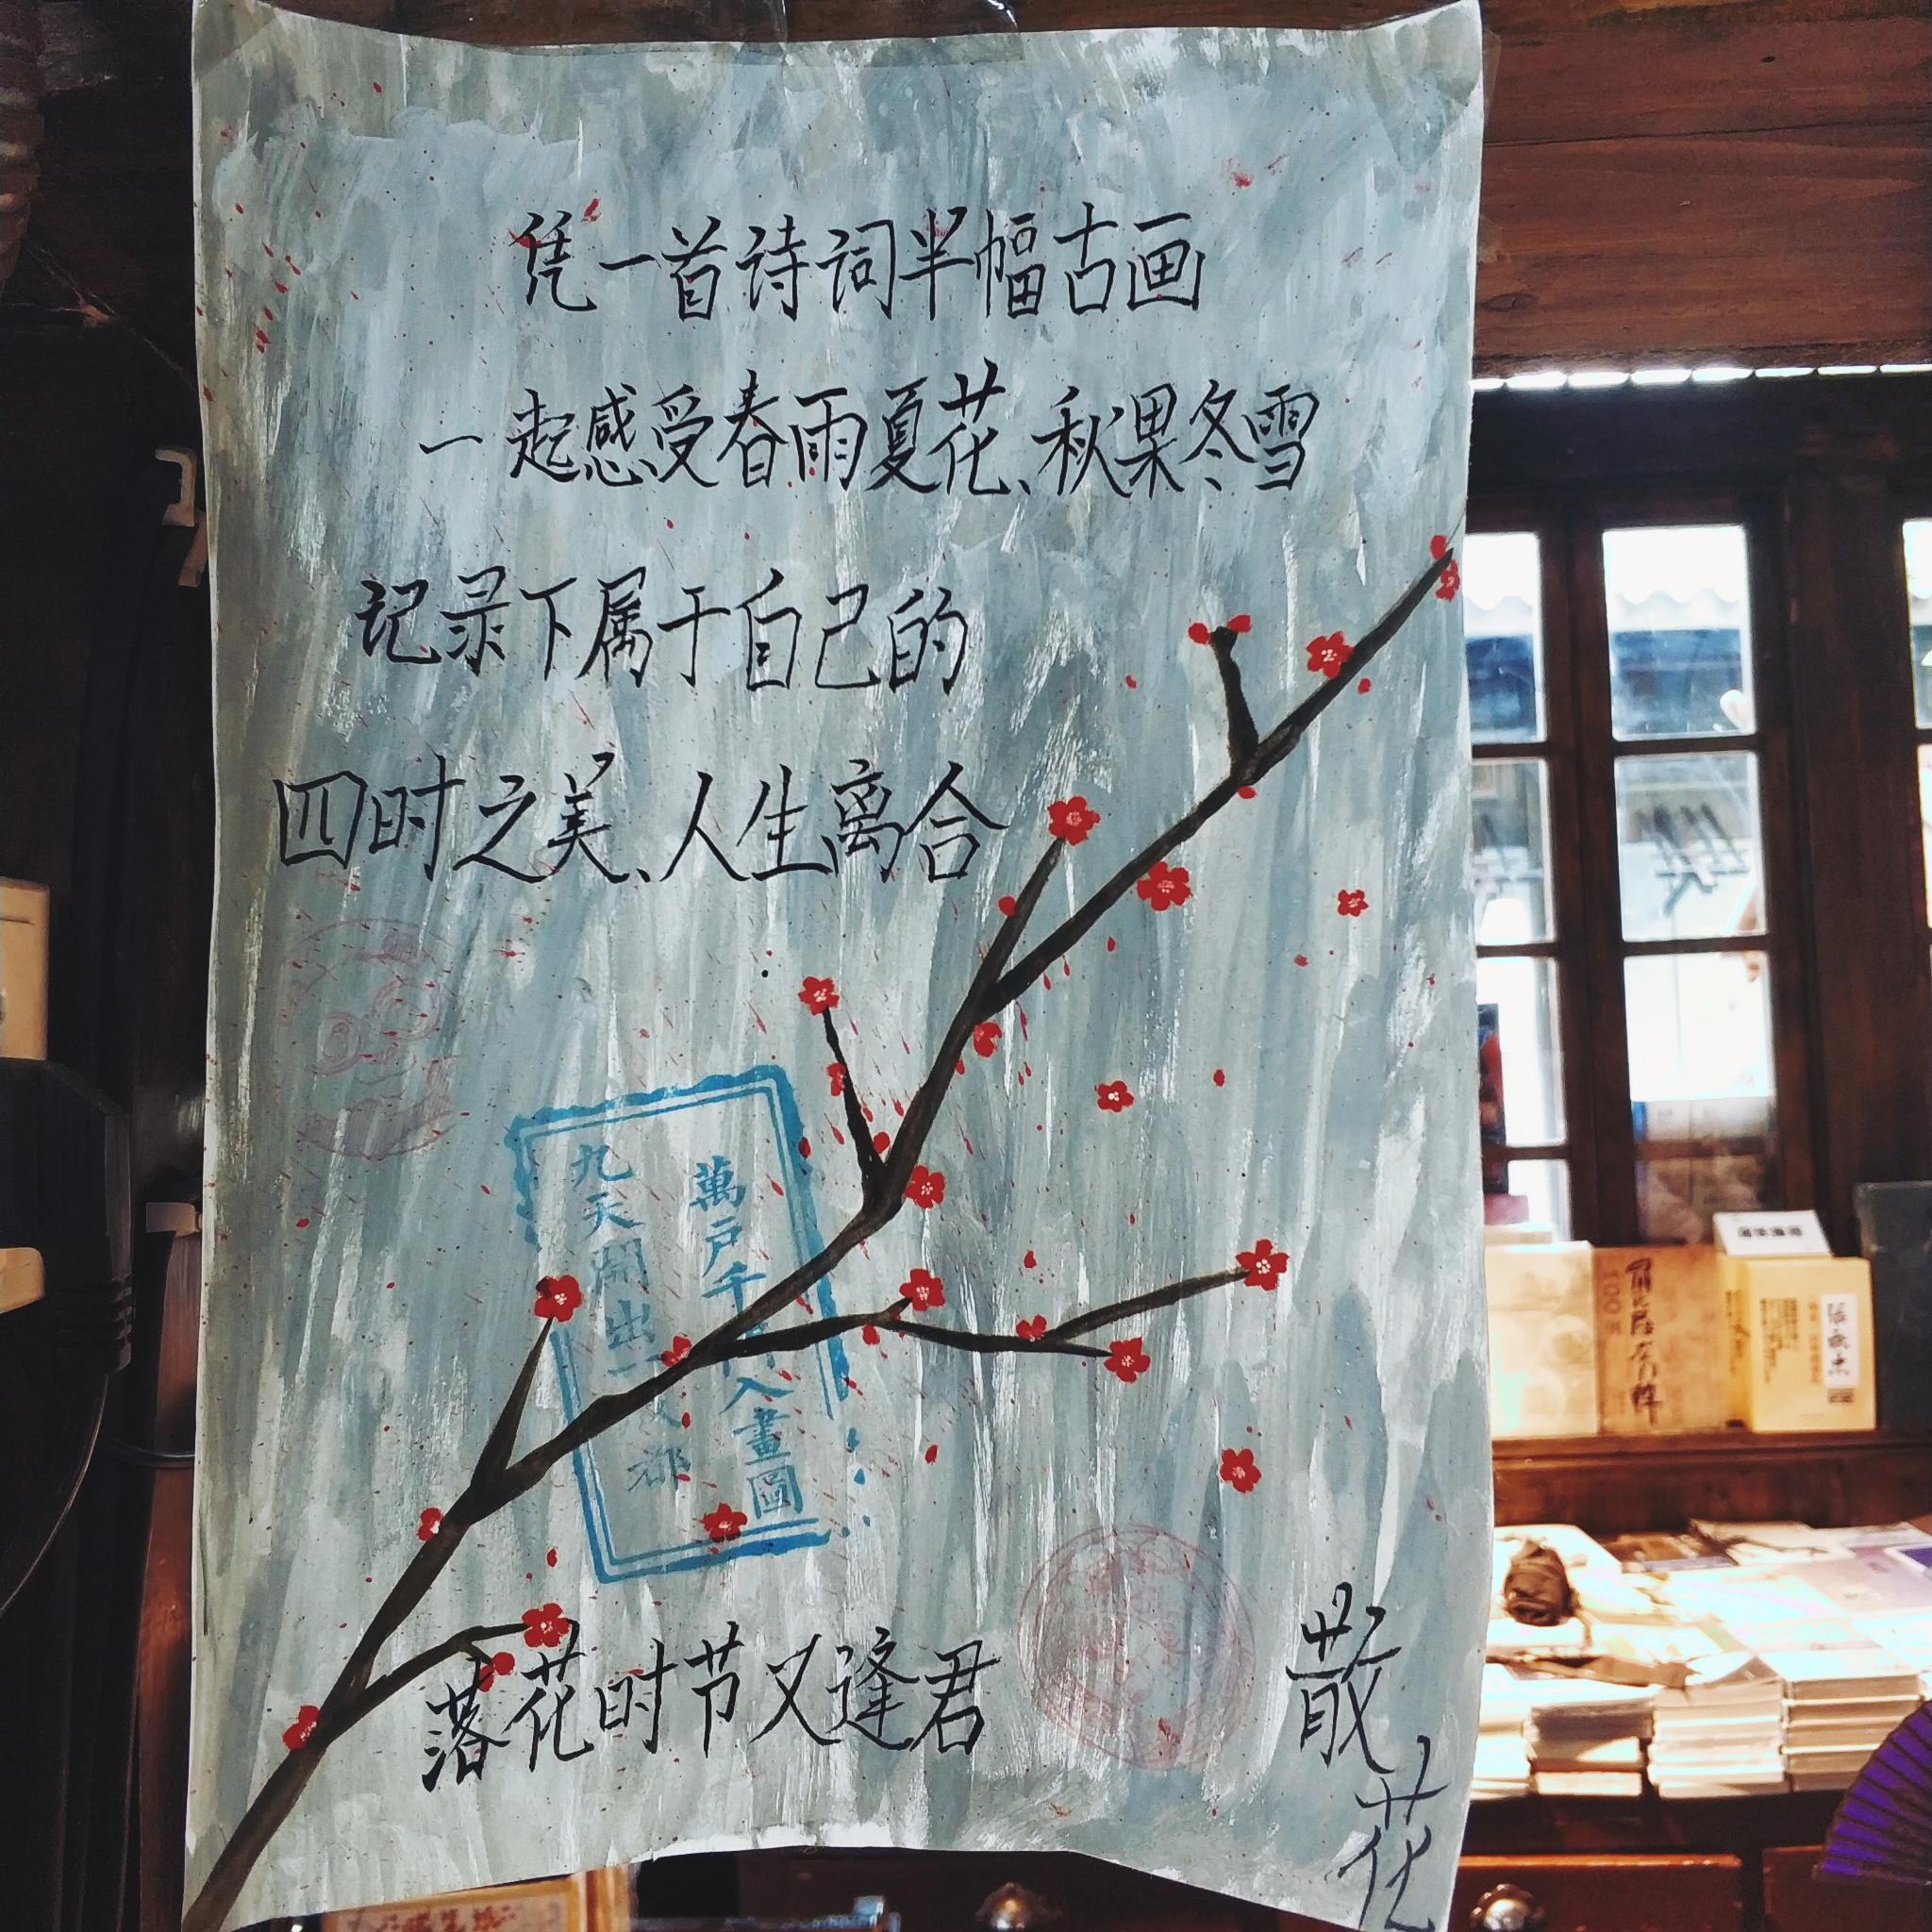 凭一首诗词半幅古画
一起感受春雨夏花、秋果冬雪
记录下属于自己的
四时之美、人生离合
萬戶千入畫圖
九天開出一都
落花时节又逢君
散花
100